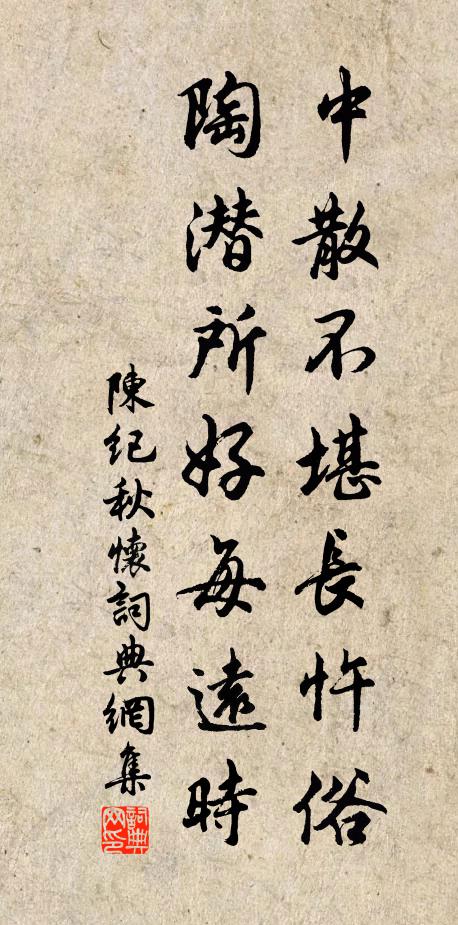 中散不堪長忤俗
陶潜所好每遠時
陳紀秋懷詞典網集
詞典網印